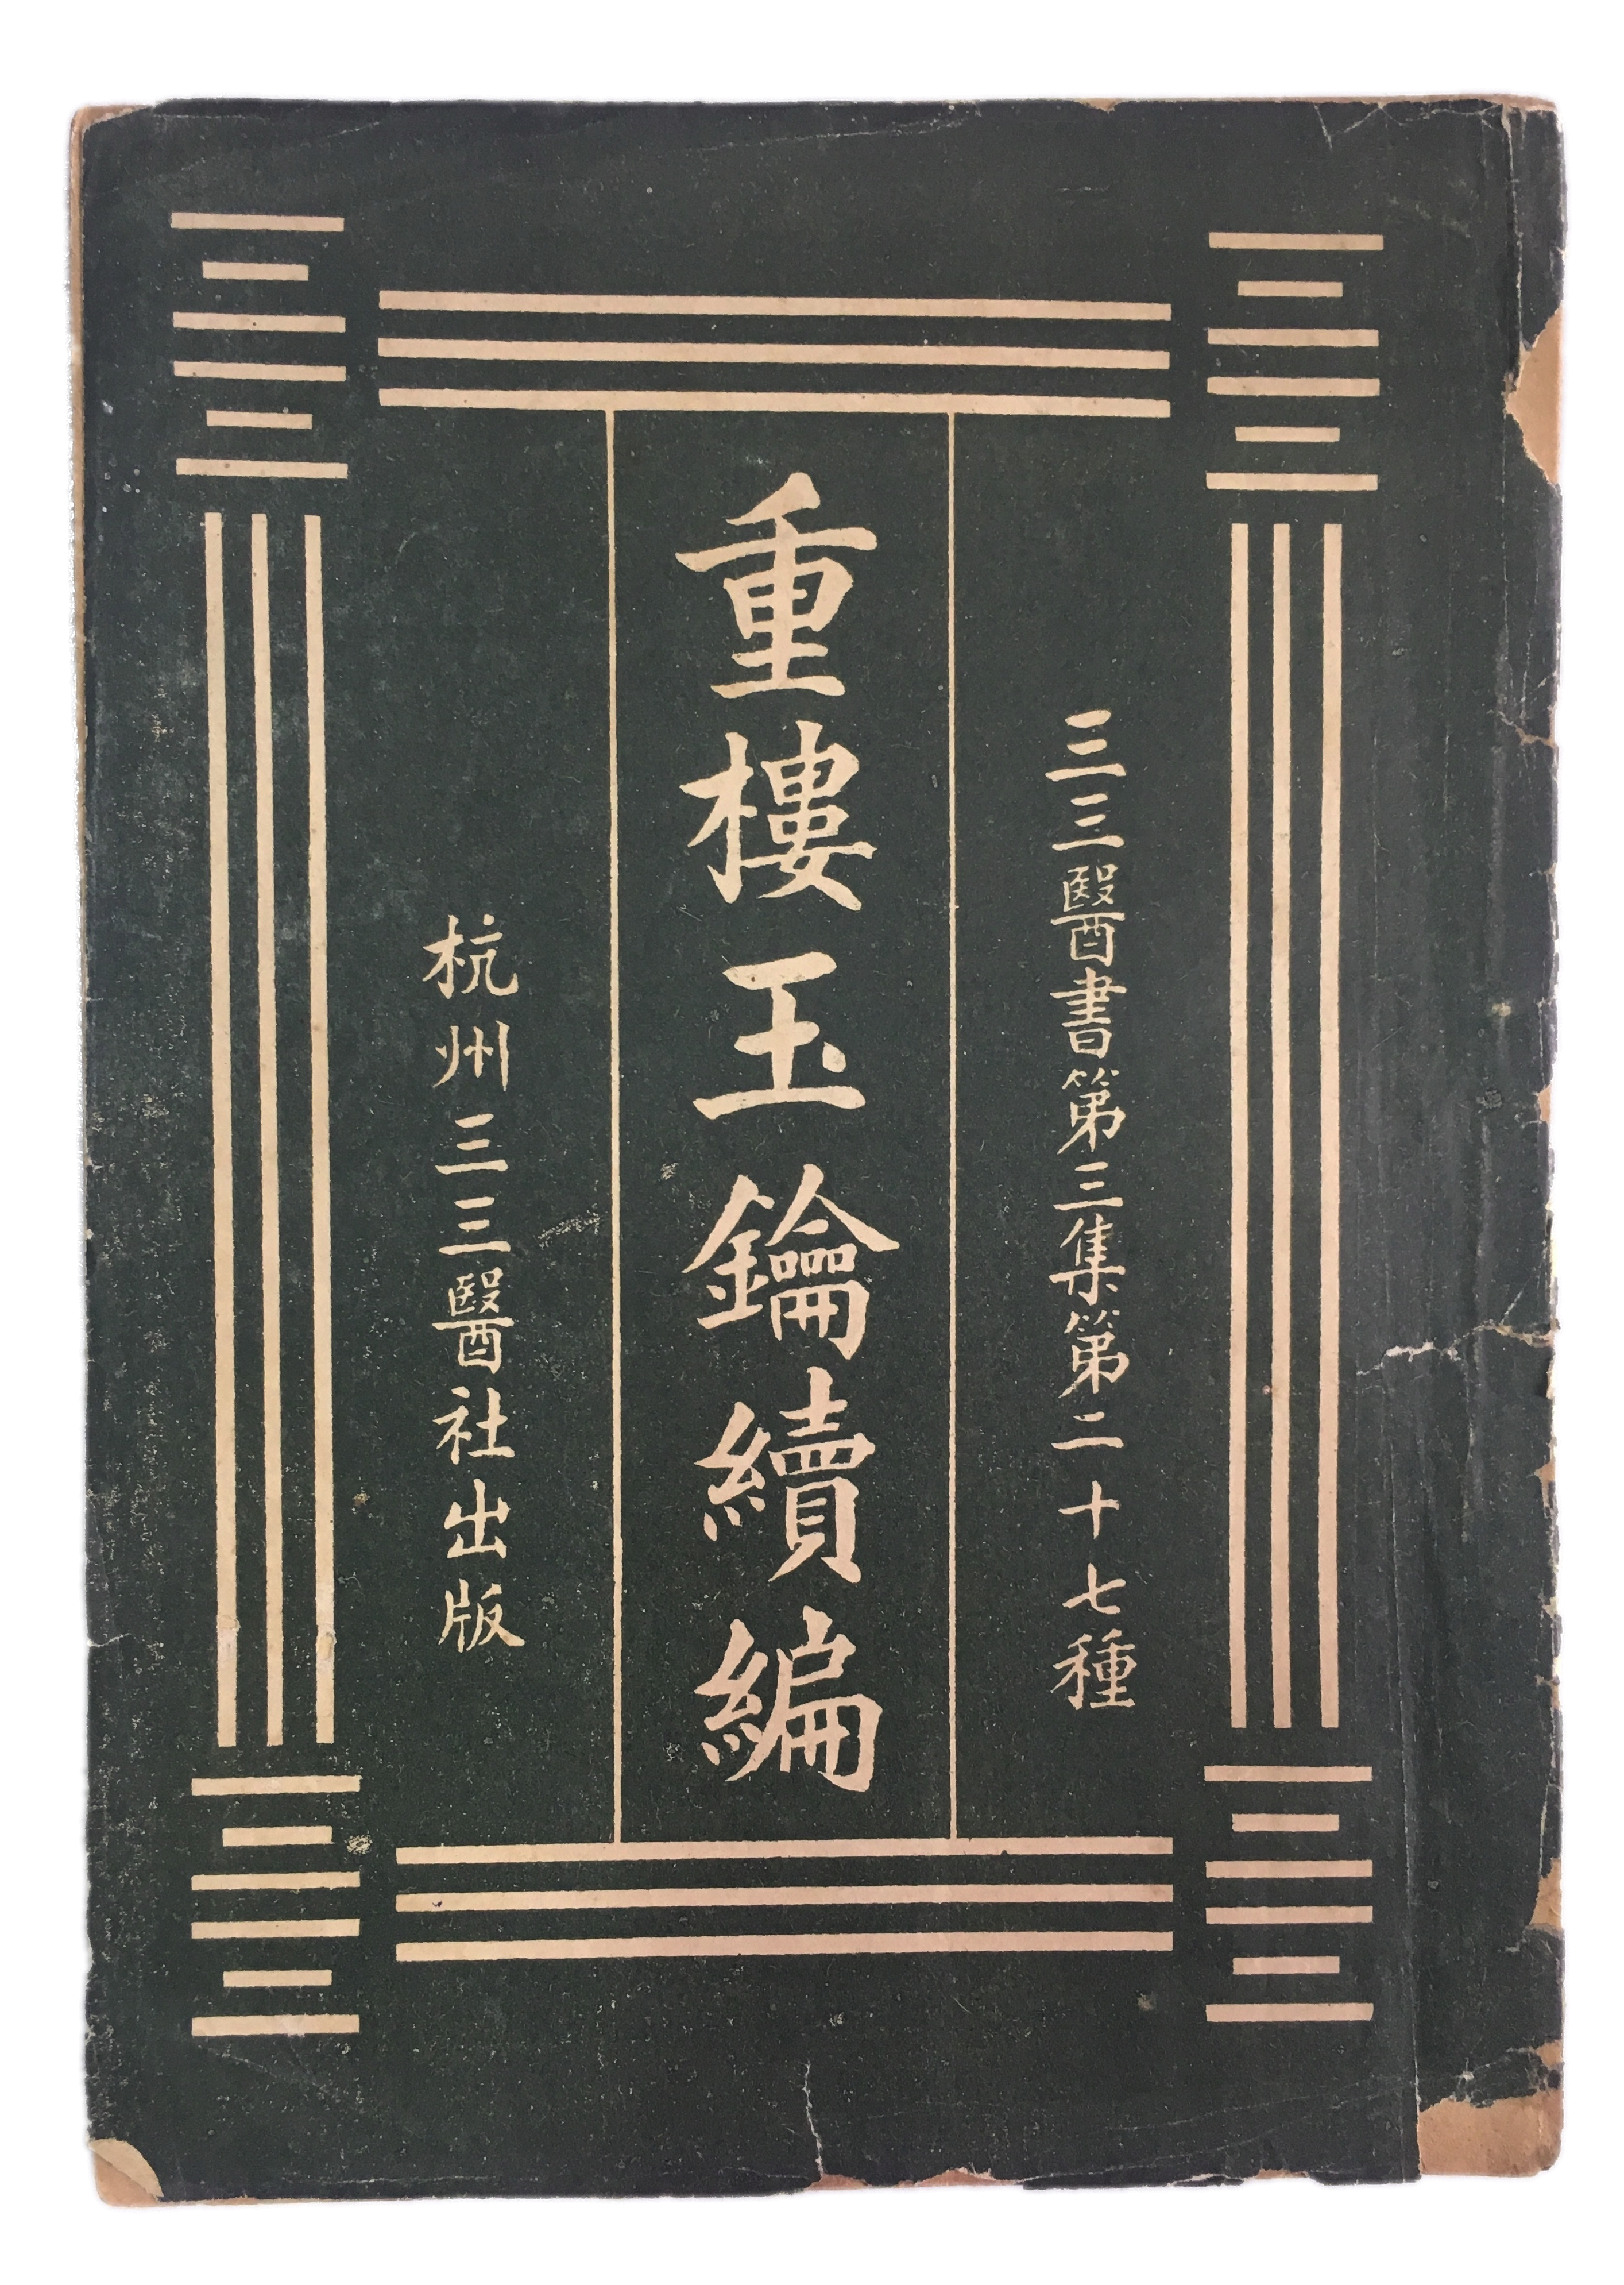 三三醫書第三集第二十七種
重樓玉鑰續編
杭州三三醫社出版